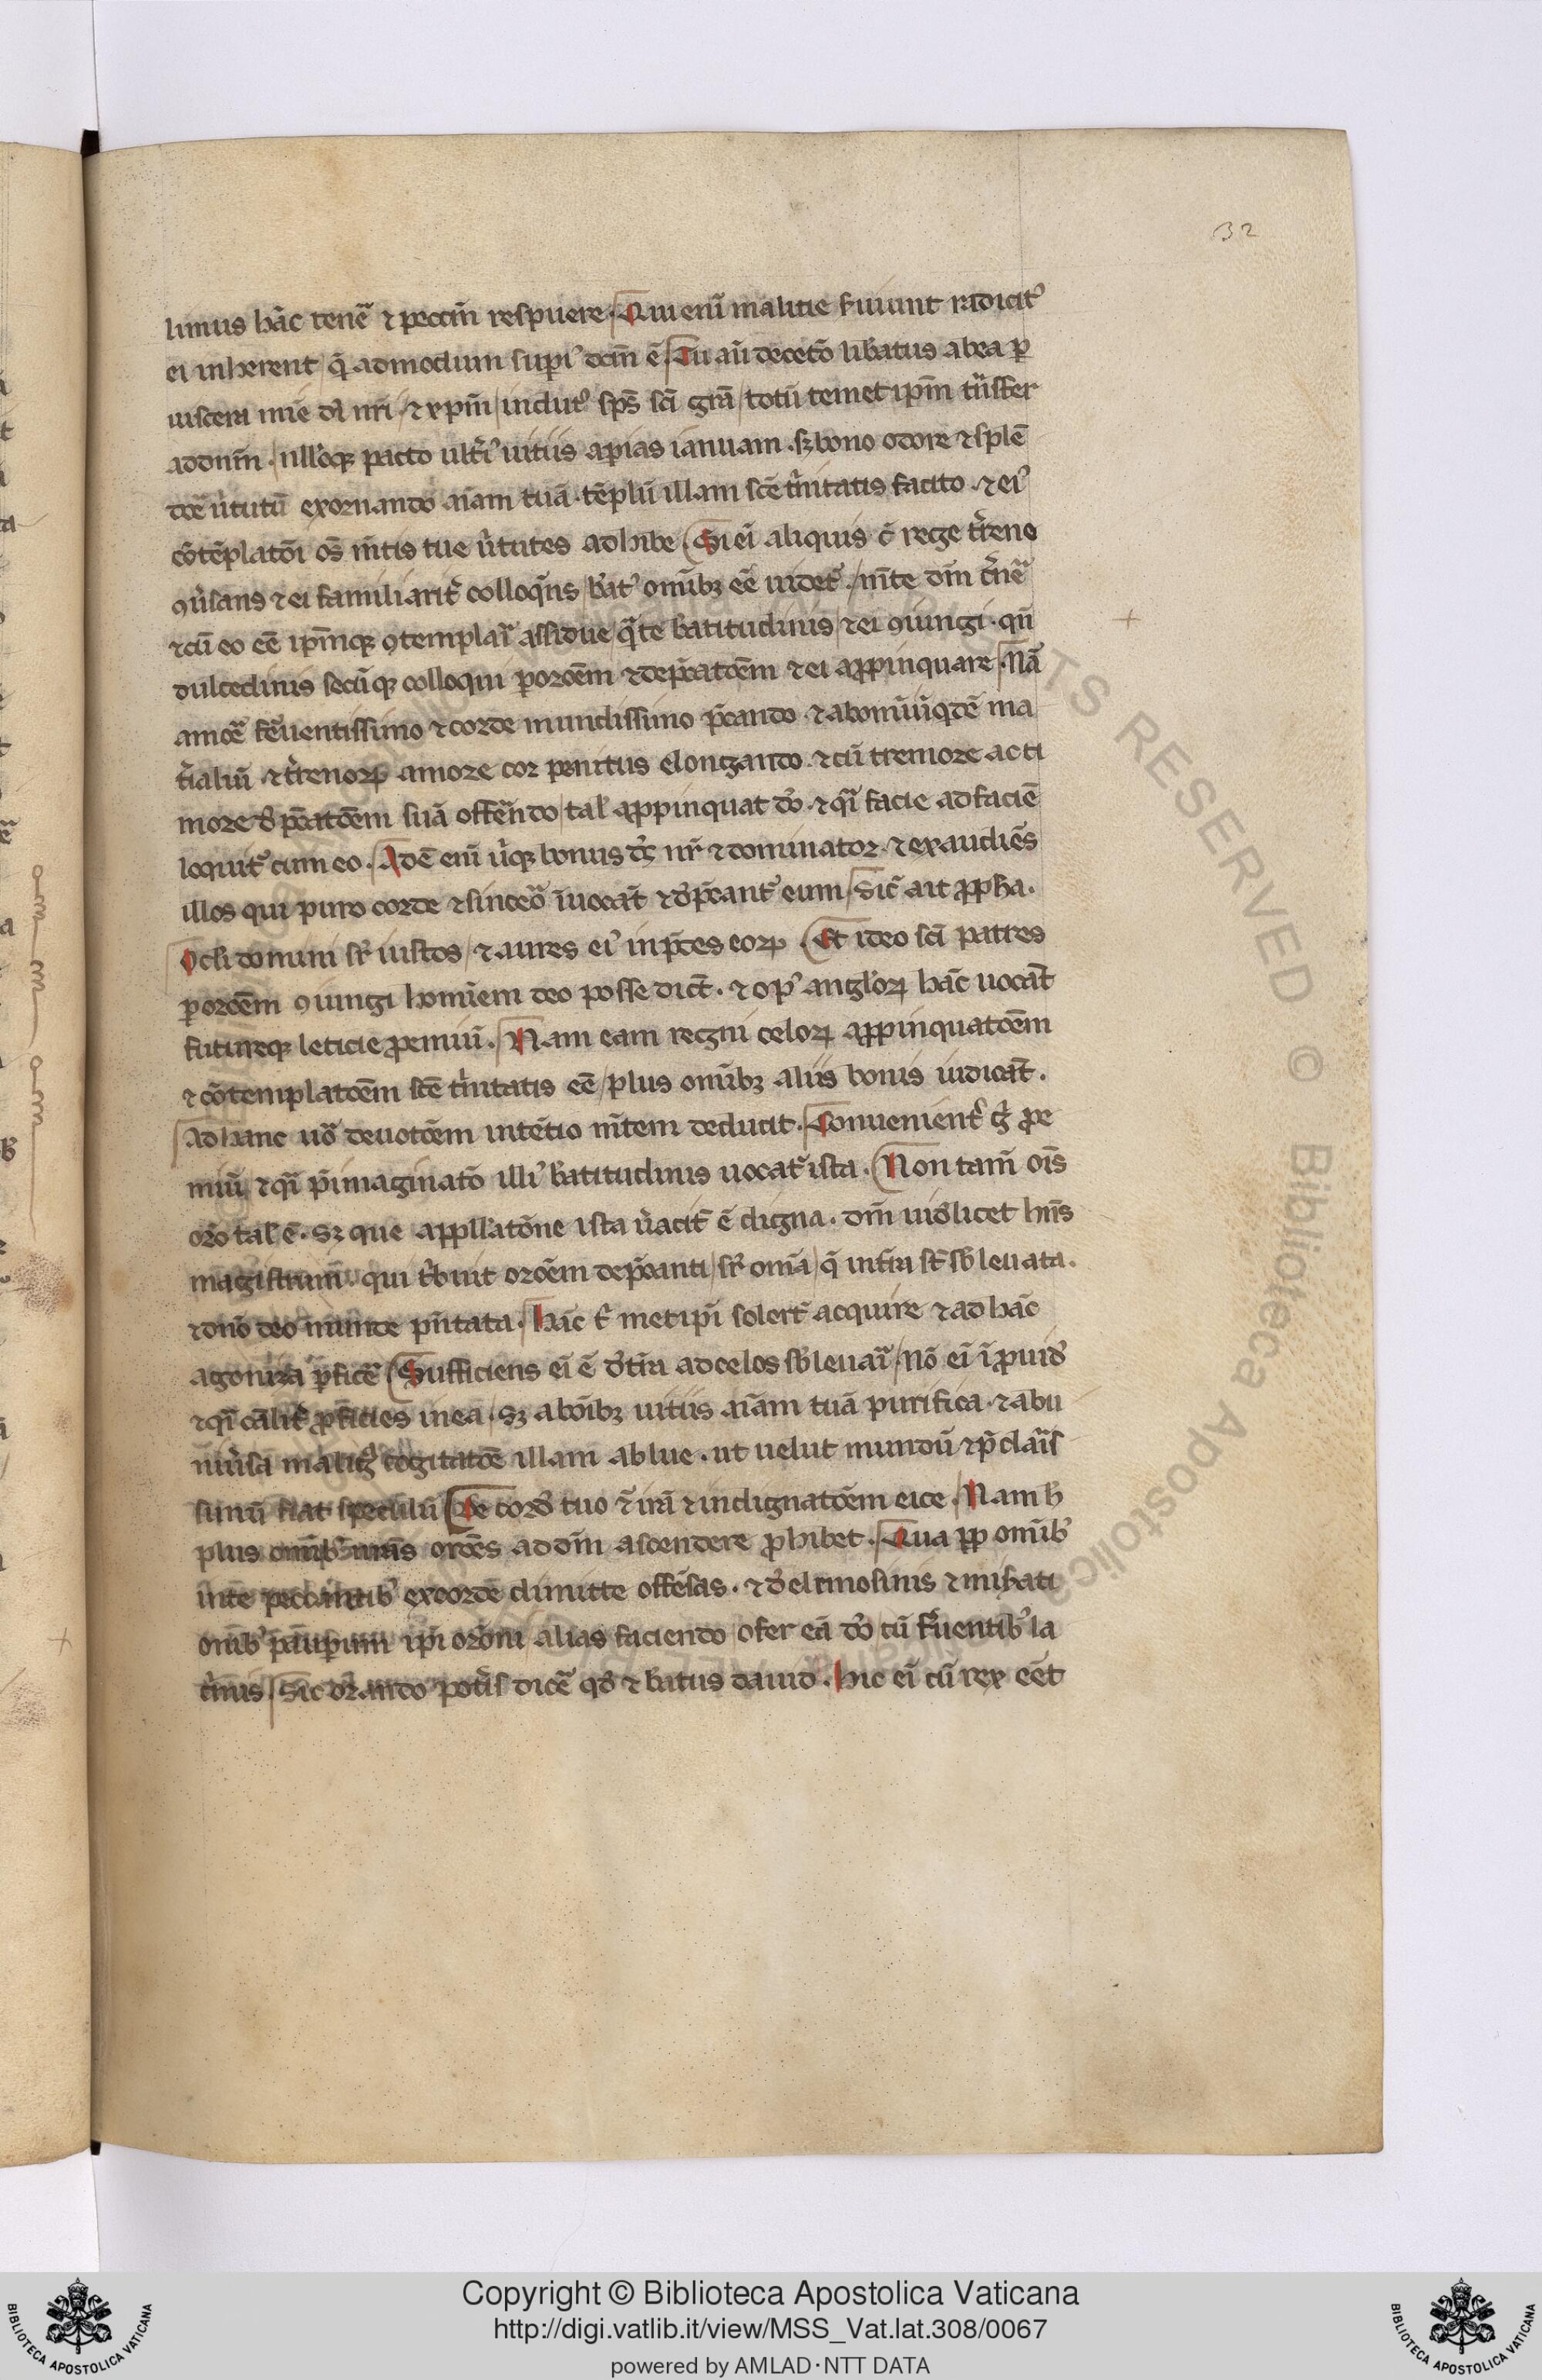 32
limus hāc tenē᷑ ⁊ peccīn respuere. Qui enī malitie s̓uiunt radicit᷑
ei inherent q̄ admodum sup̲i᷑ dcm̄ ē. Tu aū deceto᷑ lib̓atus ab ea p̲
uiscera mīe dī nr̄i / ⁊ xp̄m / indut᷑ sps̄ sc̄i grā / totū temet ip̄m t̓nsfer
ad dnm̄. ullōqꝫ pacto ult̓i᷑ uitiis ap̲ias ianuam. sꝫ bono odore ⁊ splē
dōe u̓tutū exornando aīam tuā. tēplū illam scē t̓initatis facito. ⁊ ei᷑
cōtēplatōi os̄ m̄tis tue u̓tutes adhibe Si eī aliquis c̄ rege t̓reno
ꝯu̓sans ⁊ ei familiarit̓ colloq̄ns / bat᷑ om̄ibꝫ eē uidet᷑. / m̄te dm̄ c̓nē᷑
⁊ cū eo eē ip̄mqꝫ ꝯtemplai᷑ assidue / q̄te b̄atitudinis / ⁊ ei ꝯiungi. qn̄
dulcedinis secū qꝫ colloqui p̲ or̄oēm ⁊ dep̄catōem ⁊ ei ap̲pinquare. Nā
amoē᷑ feruentissimo ⁊ corde mundissimo p̄cando. ⁊ ab om̄i ūq̄dē ma
t̓ialiū ⁊ t̓renoꝝ amore cor penitus elongando. ⁊ cū tremore ac ti
more ꝺ̓p̄catōem suā offerēndo / tal̓ ap̲pinquat dō. ⁊ q̄i facie ad faciē
loquit᷑ cum eo. Adē enī u̓iqꝫ bonus dꝰ nr̄ ⁊ dominator. ⁊ exaudiēs
illos qui puro corde ⁊ sinceo᷑ īuocāt ⁊ ꝺ̓p̄cant᷑ eum / Sic̄ ait pp̲ha.
Ocli domini sr̄ iustos / ⁊ aures ei᷑ in p̄ces eoꝝ. Et ideo sc̄i patres
p̲ or̄oēm ꝯiungi hominem deo posse dicūt. ⁊ op᷑ angloꝝ hāc uocāt
futureqꝫ leticie p̲emiū. Nam eam regni celoꝝ ap̲pinquatōem
⁊ cōtemplatōem scē t̓initatis eē / plus om̄ibꝫ aliis bonis iudicāt.
Ad hanc uo᷑ deuotōem intētio m̄tem deducit. Conuenient̓ ḡ p̲e
miū ⁊ q̄i p̄imaginatō illi᷑ b̄atitudinis uocat᷑ ista. Non tam̄ oīs
or̄o tal̓ ē. sꝫ que appl̓latōne ista u̓acit̓ ē digna. dm̄ uiꝺ̓licet hn̄s
magistrum. qui t̓buit or̄oēm dep̄canti / sr̄ om̄ia / q̄ infra st̄ sb̓leuata.
⁊ dnō deo munde pn̄tata. Hāc t᷑ metip̄i solert̓ acquire ⁊ ad hāc
agoniza p̲ficē᷑ Sufficiens eī ē ꝺ̓ t̓ra ad celos sb̓leuai᷑ / Nō eī īp̲uiꝺ̓
⁊ q̄i cālit̓ p̲ficies in ea. sꝫ ab oīb̓ꝫ uitiis aīam tuā purifica. ⁊ ab u
niu̓sa malig᷑ cogitatōe illam ablue. ut uelut mundū ⁊ p̄clai᷑s
simū fiat speculū De corꝺ̓ tuo t̄ irā ⁊ indignatōem eice. Nam h̄
plus om̄ib᷑ n̄ras or̄oēs ad dm̄ ascendere p̲hibet. Qua pp̲ om̄ib᷑
in te peccantib᷑ ex corde dimitte offēsas. ⁊ ꝺ̓ elimosinis ⁊ mis̓ati
onib᷑ paup̲um ip̄i or̄oni alias faciendo / ofer eā dō cū feruentib᷑ la
c̓mis. / Sic or̄ando pot̓is dicē᷑ qꝺ̓ ⁊ b̄atus dauid. Hic eī cū rex eēt
Copyright © Biblioteca Apostolica Vaticana
http://digi.vatlib.it/view/MSS_Vat.lat.308/0067
powered by AMLAD·NTT DATA
BIBLIOTECA APOSTOLICA VATICANA
BIBLIOTECA APOSTOLICA VATICANA